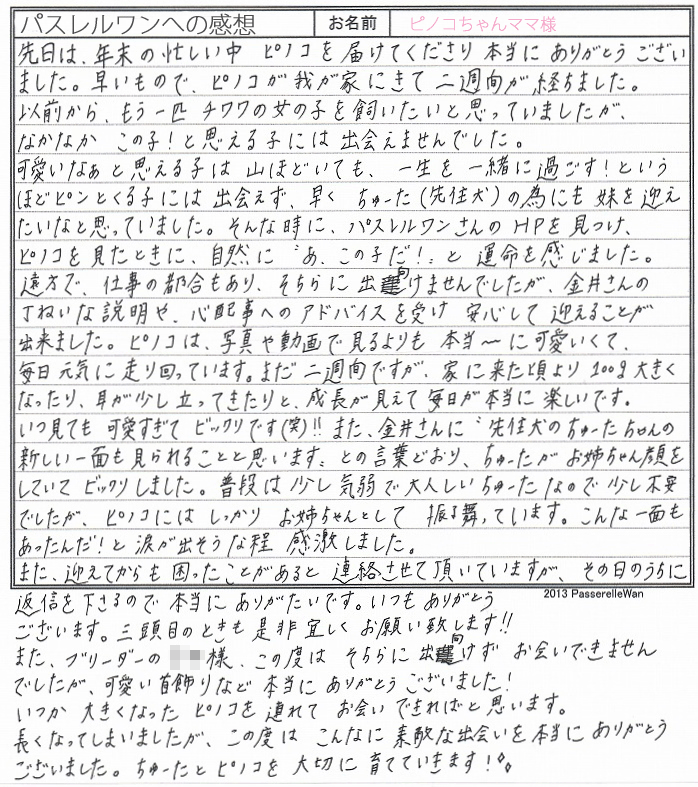 パスレルワンへの感想 お名前 ピノコちゃんママ様
先日は、年末の忙しい中 ピノコを届けてくださり本当にありがとうござい
ました。早いもので、ピノコが我が家にきて二週間が、経ちました。
以前から、もう一匹 チワワの女の子を飼いたいと思っていましたが、
なかなか この子!と思える子には出会えませんでした。
可愛いなぁと思える子は山ほどいても、一生を一緒に過ごす!という
ほどピンとくる子には出会えず、早く ちゅーた(先住犬)の為にも妹を迎え
たいなと思っていました。そんな時に、パスレルワンさんのHPを見つけ、
ピノコを見たときに、自然に〝あ、この子だ!〟と 運命を感じました。
遠方で、仕事の都合もあり、そちらに出向けませんでしたが、金井さんの
丁ねいな説明や、心配事へのアドバイスを受け 安心して迎えることが
出来ました。ピノコは、写真や動画で見るよりも 本当〜に可愛いくて、
毎日元気に走り回っています。まだ二週間ですが、家に来た頃より100g大きく
なったり、耳が少し立ってきたりと、成長が見えて毎日が本当に楽しいです。
いつ見ても可愛すぎてビックリです(笑)!!また、金井さんに〝先住犬のちゅーたちゃんの
新しい一面も見られることと思います〟との言葉どおり、ちゅーたがお姉ちゃん顔を
していてビックリしました。普段は少し気弱で大人しいちゅーたなので少し不安
でしたが、ピノコにはしっかり お姉ちゃんとして 振る舞っています。こんな一面も
あったんだ!と涙が出そうな程 感激しました。
また、迎えてからも困ったことがあると連絡させて頂いていますが、その日のうちに
2013 PasserelleWan
返信を下さるので本当にありがたいです。いつもありがとう
ございます。三頭目のときも是非宜しくお願い致します!!
また、ブリーダーの 様、この度は そちらに出向けず お会いできません
でしたが、可愛い首飾りなど本当にありがとうございました!
いつか 大きくなった ピノコを連れて お会いできればと思います。
長くなってしまいましたが、この度は こんなに素敵な出会いを本当にありがとう
ございました。ちゅーたとピノコを大切に育てていきます!